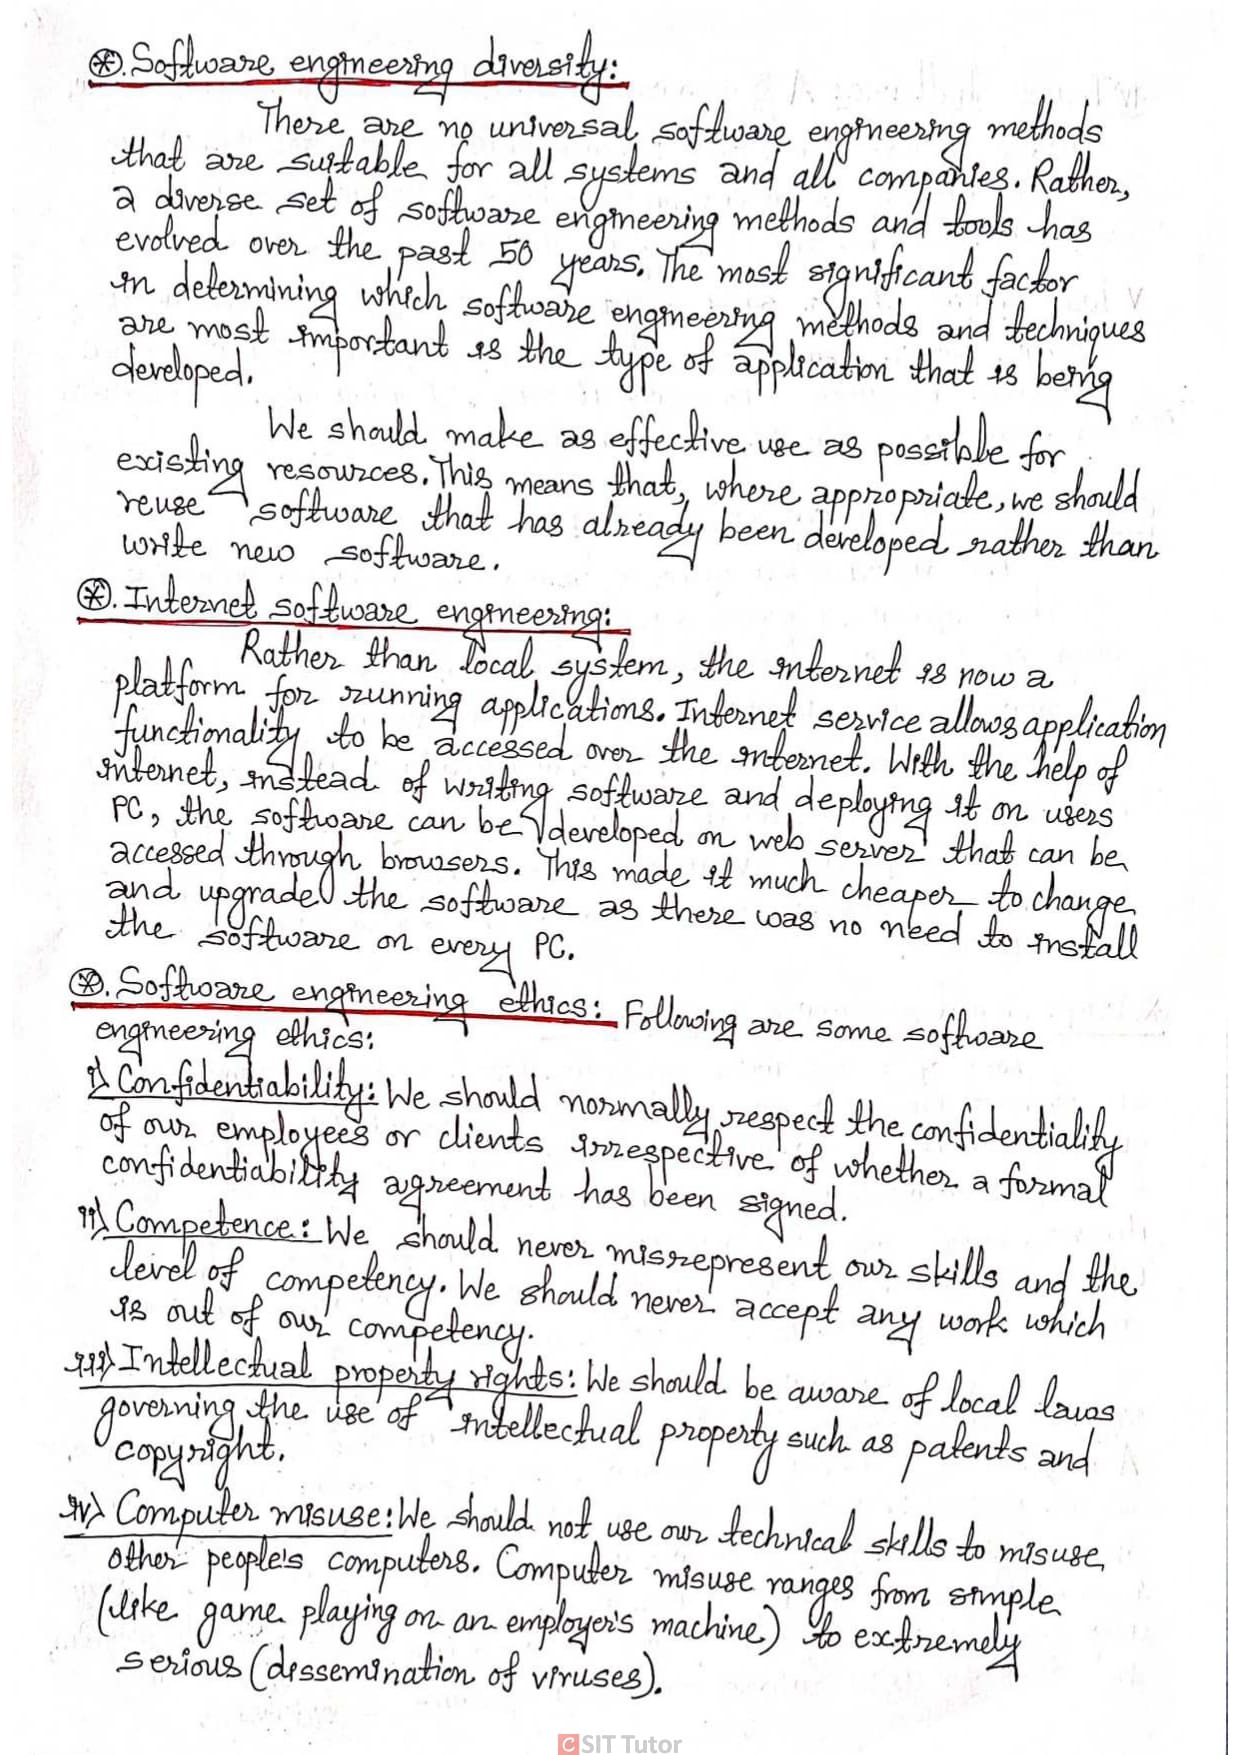 ⊛. Software engineering diversity:
There are no universal software engineering methods
that are suitable for all systems and all companies. Rather,
a diverse set of software engineering methods and tools has
evolved over the past 50 years. The most significant factor
in determining which software engineering methods and techniques
are most important is the type of application that is being
developed.
We should make as effective use as possible for
existing resources. This means that, where appropriate, we should
reuse software that has already been developed rather than
write new software.
⊛. Internet software engineering:
Rather than local system, the internet is now a
platform for running applications. Internet service allows application
functionality to be accessed over the internet. With the help of
internet, instead of writing software and deploying it on users
PC, the software can be developed on web server that can be
accessed through browsers. This made it much cheaper to change
and upgrade the software as there was no need to install
the software on every PC.
⊛. Software engineering ethics: Following are some software
engineering ethics:
i) Confidentiability: We should normally respect the confidentiality
of our employees or clients irrespective of whether a formal
confidentiability agreement has been signed.
ii) Competence: We should never misrepresent our skills and the
level of competency. We should never accept any work which
is out of our competency.
iii) Intellectual property rights: We should be aware of local laws
governing the use of intellectual property such as patents and
copyright.
iv) Computer misuse: We should not use our technical skills to misuse
other people's computers. Computer misuse ranges from simple
(like game playing on an employer's machine) to extremely
serious (dissemination of viruses).
CSIT Tutor